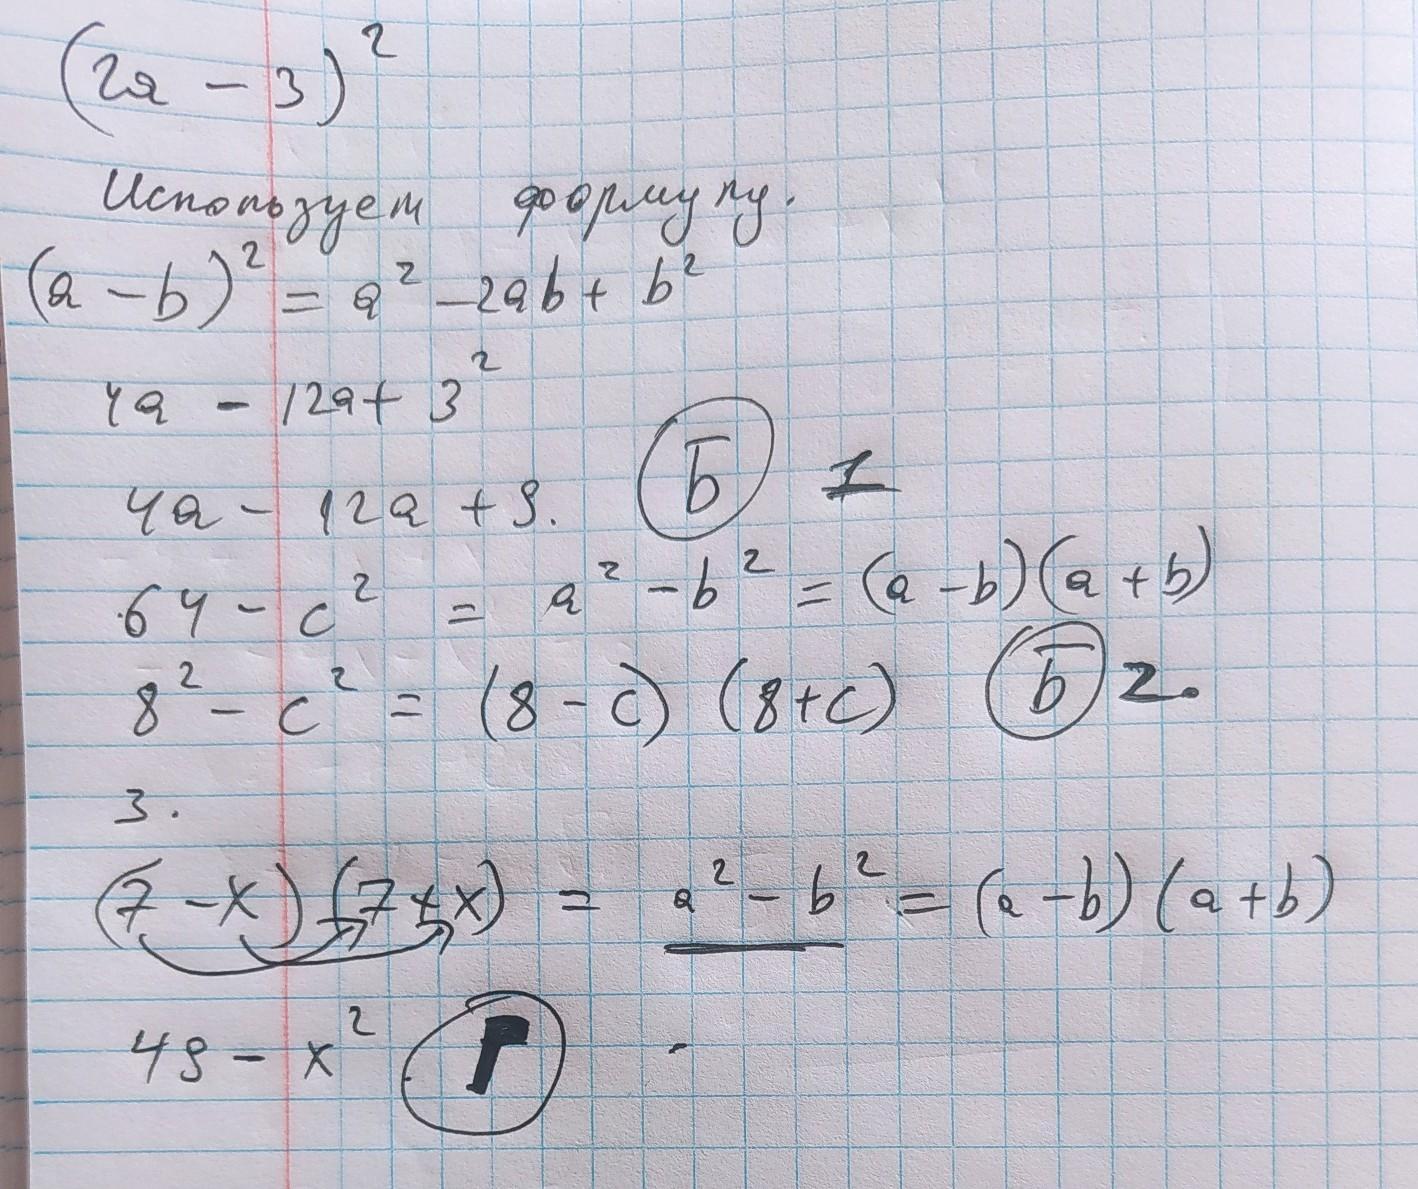 (2a - 3)²
Используем формулу.
(a - b)² = a² - 2ab + b²
4a - 12a + 3²
4a - 12a + 9. Б 1
64 - c² = a² - b² = (a - b)(a + b)
8² - c² = (8 - c) (8 + c) Б 2.
3.
(7 - x) (7 + x) = a² - b² = (a - b) (a + b)
49 - x² Г